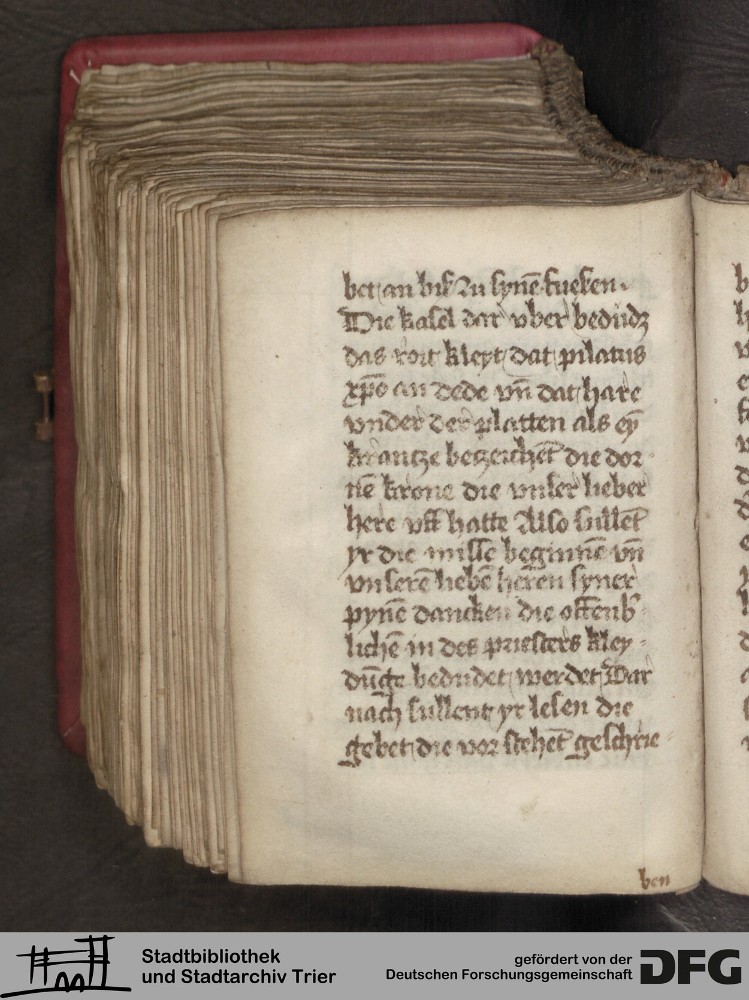 bet an biß zu synē fueßen.
Die kasel dar vber bedudz
das roit kleyt dat pilatus
xp̄o an dede vn̄ dat hare
vnder der platten als eȳ
krantze betzeichet̄ die dor
nē krone die vnser lieber
here vff hatte Also sullet̄
yr die misse beginnē vn̄
vnserē liebē heren syner
pynē dancken die offenb̄
lichē in des priesters kley-
dūge bedudet werdet Dar
nach sullent yr lesen die
gebet die vor stehet̄ geschrie-
ben
Stadtbibliothek
und Stadtarchiv Trier
gefördert von der
Deutschen Forschungsgemeinschaft
DFG